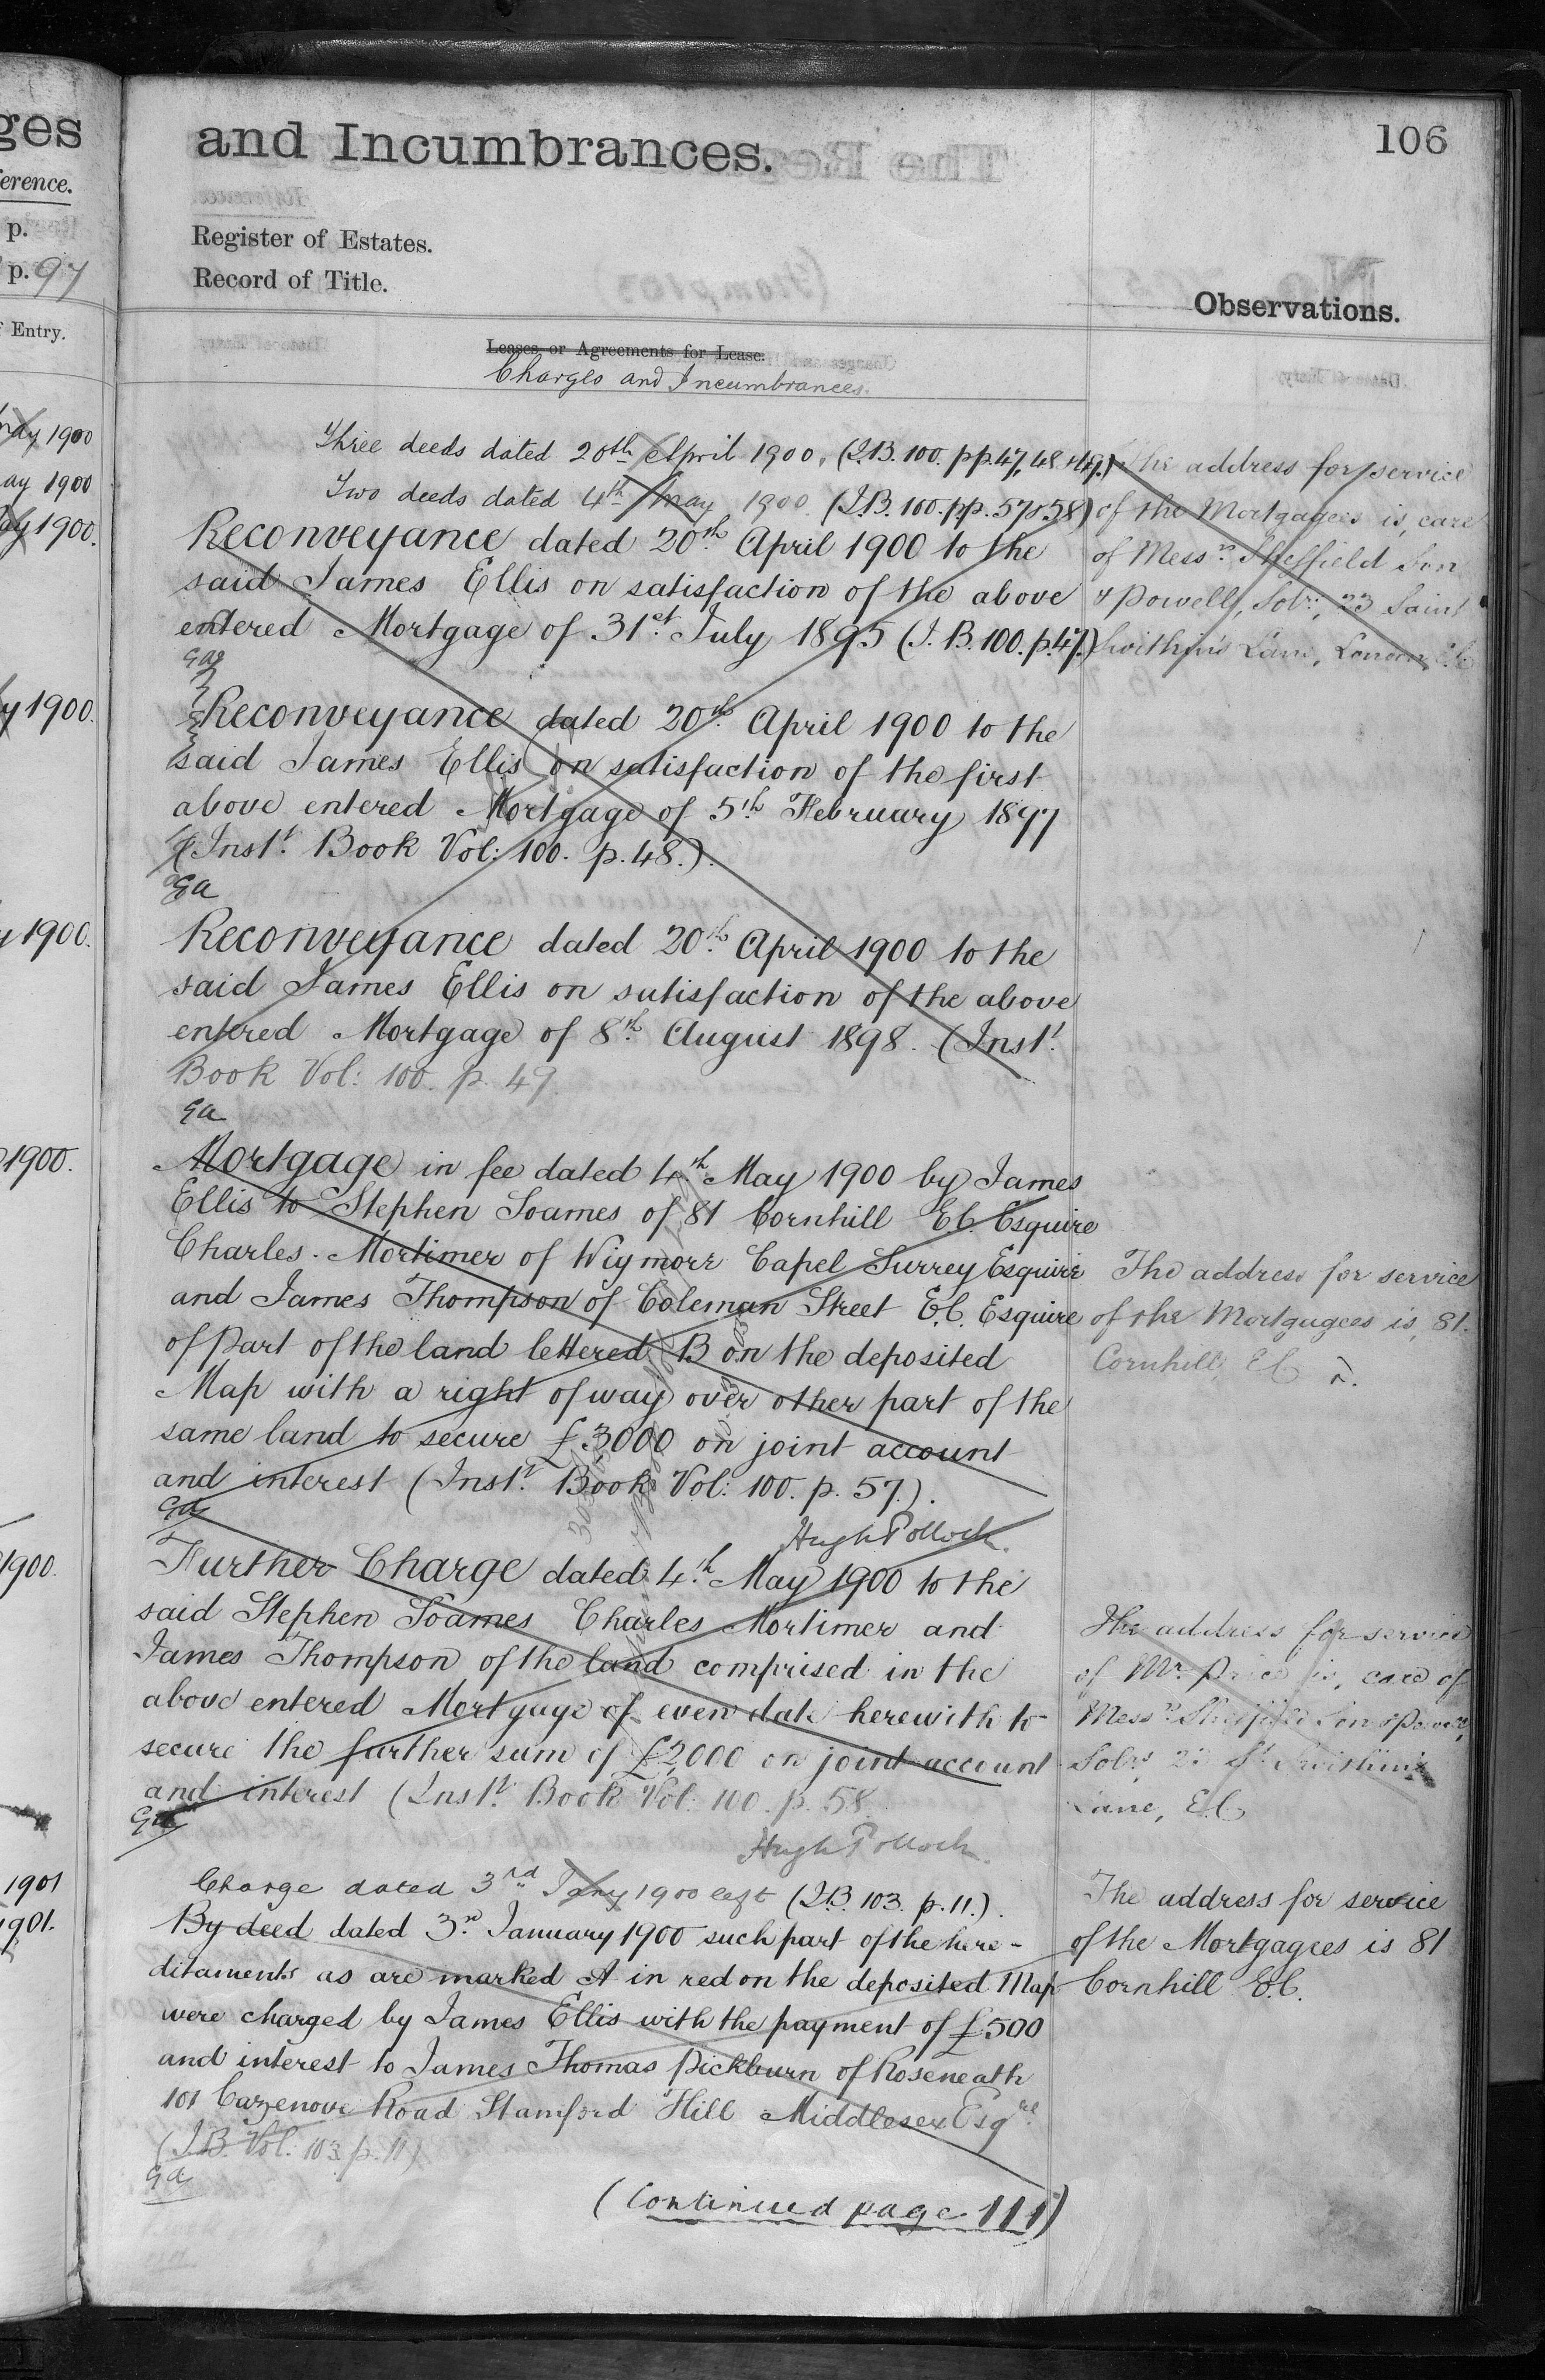 ges
erence.
p.
p. 97
Entry.
May 1900
ay 1900
ay 1900.
y 1900.
y 1900.
1900.
1900.
1901
1901.
and Incumbrances.
106
Register of Estates.
Record of Title.
Observations.
Leases or Agreements for Lease.
Charges and Incumbrances.
Three deeds dated 20th April 1900. (I.B. 100. pp. 47, 48 & 49.)
Two deeds dated 4th May 1900. (I.B. 100. pp. 57 & 58)
Reconveyance dated 20th April 1900 to the
said James Ellis on satisfaction of the above
entered Mortgage of 31st July 1895 (I.B. 100. p. 47.)
Ga
Reconveyance dated 20th April 1900 to the
said James Ellis on satisfaction of the first
above entered Mortgage of 5th February 1897
(Inst. Book Vol: 100. p. 48.).
Ga
Reconveyance dated 20th April 1900 to the
said James Ellis on satisfaction of the above
entered Mortgage of 8th August 1898. (Inst.
Book Vol: 100. p. 49
Ga
Mortgage in fee dated 4th May 1900 by James
Ellis to Stephen Soames of 81 Cornhill E.C. Esquire
Charles Mortimer of Wigmore Capel Surrey Esquire
and James Thompson of Coleman Street E.C. Esquire
of part of the land lettered B on the deposited
Map with a right of way over other part of the
same land to secure £3000 on joint account
and interest (Inst. Book Vol: 100. p. 57.).
Ga
Hugh Pollock.
Further Charge dated 4th May 1900 to the
said Stephen Soames Charles Mortimer and
James Thompson of the land comprised in the
above entered Mortgage of even date herewith to
secure the further sum of £2,000 on joint account
and interest (Inst. Book Vol: 100. p. 58
Ga
Hugh Pollock.
Charge dated 3rd Jany 1900 left (I.B. 103. p. 11.).
By deed dated 3rd January 1900 such part of the here-
ditaments as are marked A in red on the deposited Map
were charged by James Ellis with the payment of £500
and interest to James Thomas Pickburn of Roseneath
101 Cazenove Road Stamford Hill Middlesex Esqre
(I.B. Vol: 103 p. 11)
Ga
(Continued page 111)
The address for service
of the Mortgagees is, care
of Messrs Sheffield Son
& Powell, Solrs, 23 Saint
Swithin's Lane, London, E.C.
The address for service
of the Mortgagees is, 81.
Cornhill, E.C.
The address for service
of Mr. Price is, care of
Messrs Sheffield Son & Powell,
Solrs 23 St. Swithin's
Lane, E.C.
The address for service
of the Mortgagees is 81
Cornhill E.C.